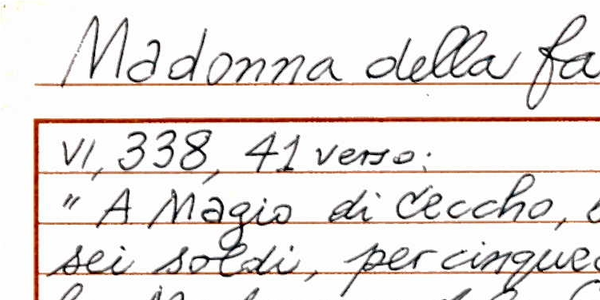 Madonna della fa
VI, 338, 41 verso:
" A Magio di Ceccho,
sei soldi, per cinque